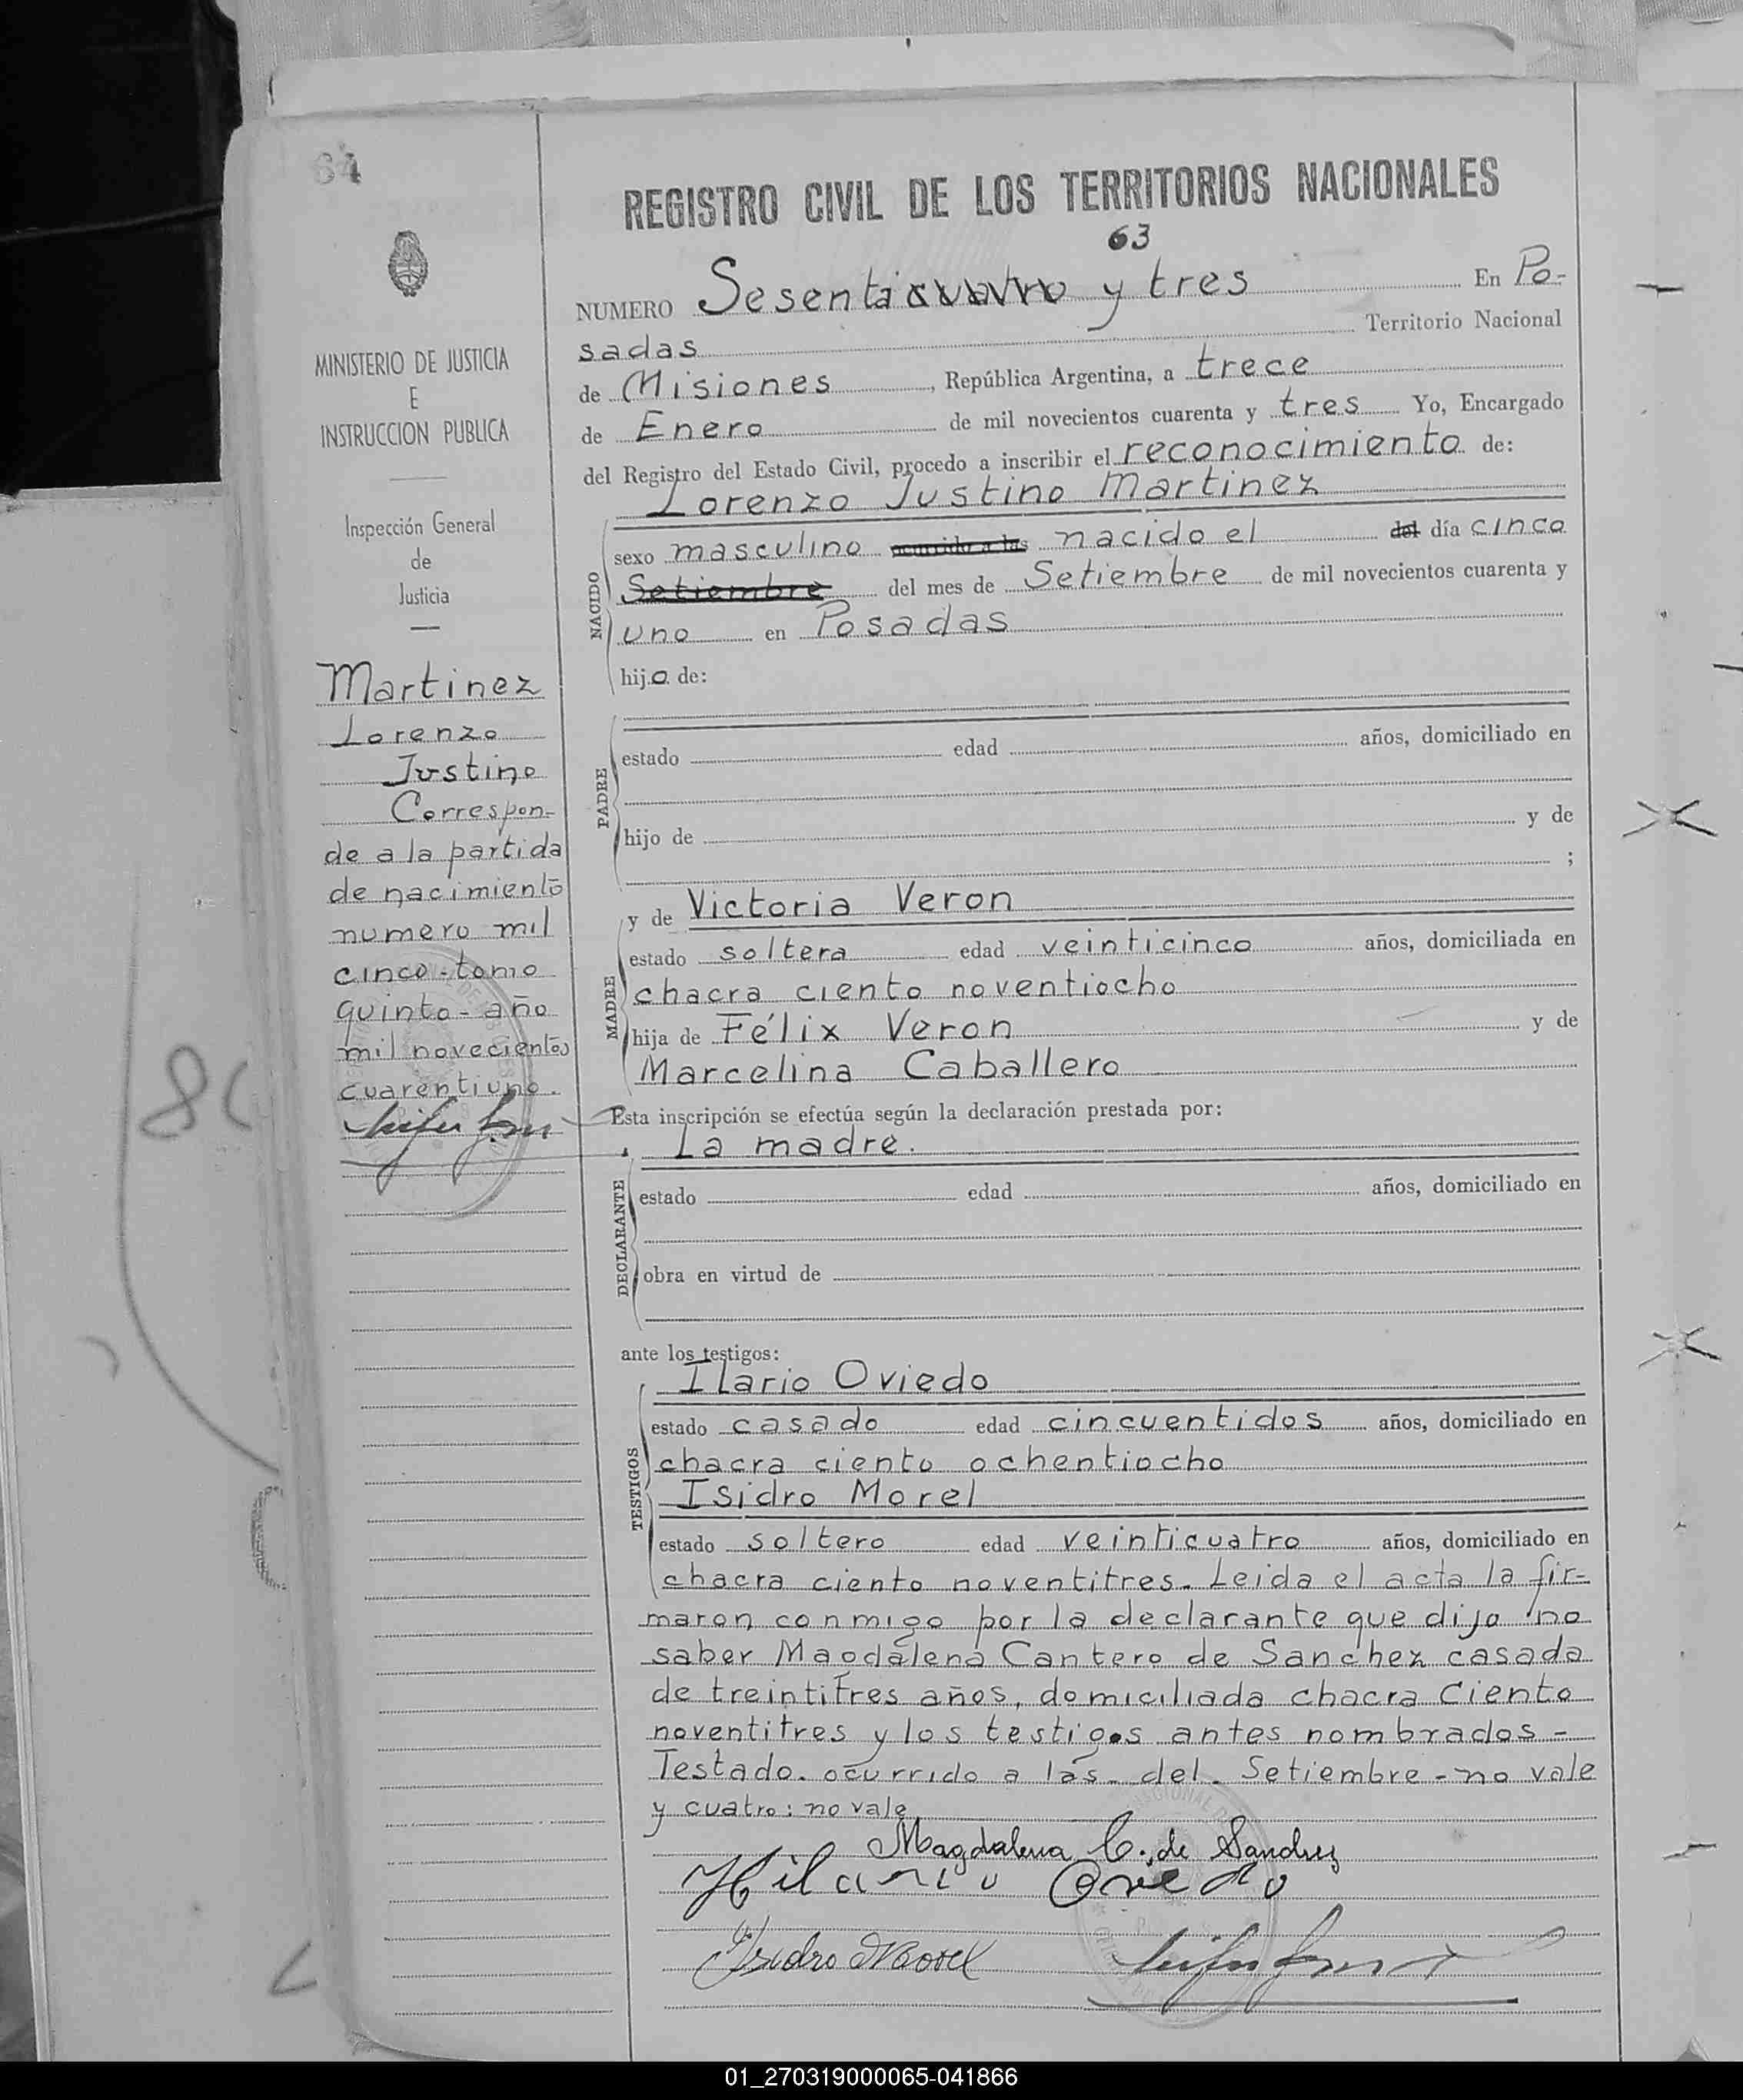 64
MINISTERIO DE JUSTICIA
E
INSTRUCCION PUBLICA
Inspección General
de
Justicia
Martinez
Lorenzo
Justino
Correspon-
de a la partida
de nacimiento
numero mil
cinco - tomo
quinto - año
mil novecientos
cuarentiuno.
REGISTRO CIVIL DE LOS TERRITORIOS NACIONALES
63
NUMERO Sesenticuatro y tres En Po-
sadas Territorio Nacional
de Misiones, República Argentina, a trece
de Enero de mil novecientos cuarenta y tres Yo, Encargado
del Registro del Estado Civil, procedo a inscribir el reconocimiento de:
Lorenzo Justino Martinez
NACIDO
sexo masculino ocurrido a las nacido el del día cinco
Setiembre del mes de Setiembre de mil novecientos cuarenta y
uno en Posadas
hijo de:
PADRE
estado edad años, domiciliado en
hijo de y de
;
MADRE
y de Victoria Veron
estado soltera edad veinticinco años, domiciliada en
chacra ciento noventiocho
hija de Félix Veron y de
Marcelina Caballero
Esta inscripción se efectúa según la declaración prestada por:
La madre.
DECLARANTE
estado edad años, domiciliado en
obra en virtud de
ante los testigos:
TESTIGOS
Ilario Oviedo
estado casado edad cincuentidos años, domiciliado en
chacra ciento ochentiocho
Isidro Morel
estado soltero edad veinticuatro años, domiciliado en
chacra ciento noventitres. Leida el acta la fir-
maron conmigo por la declarante que dijo no
saber Magdalena Cantero de Sanchez casada
de treintitres años, domiciliada chacra ciento
noventitres y los testigos antes nombrados -
Testado. ocurrido a las - del. Setiembre - no vale
y cuatro: no vale
Magdalena C. de Sanchez
Hilario Oviedo
Isidro Morel
80
01_270319000065-041866